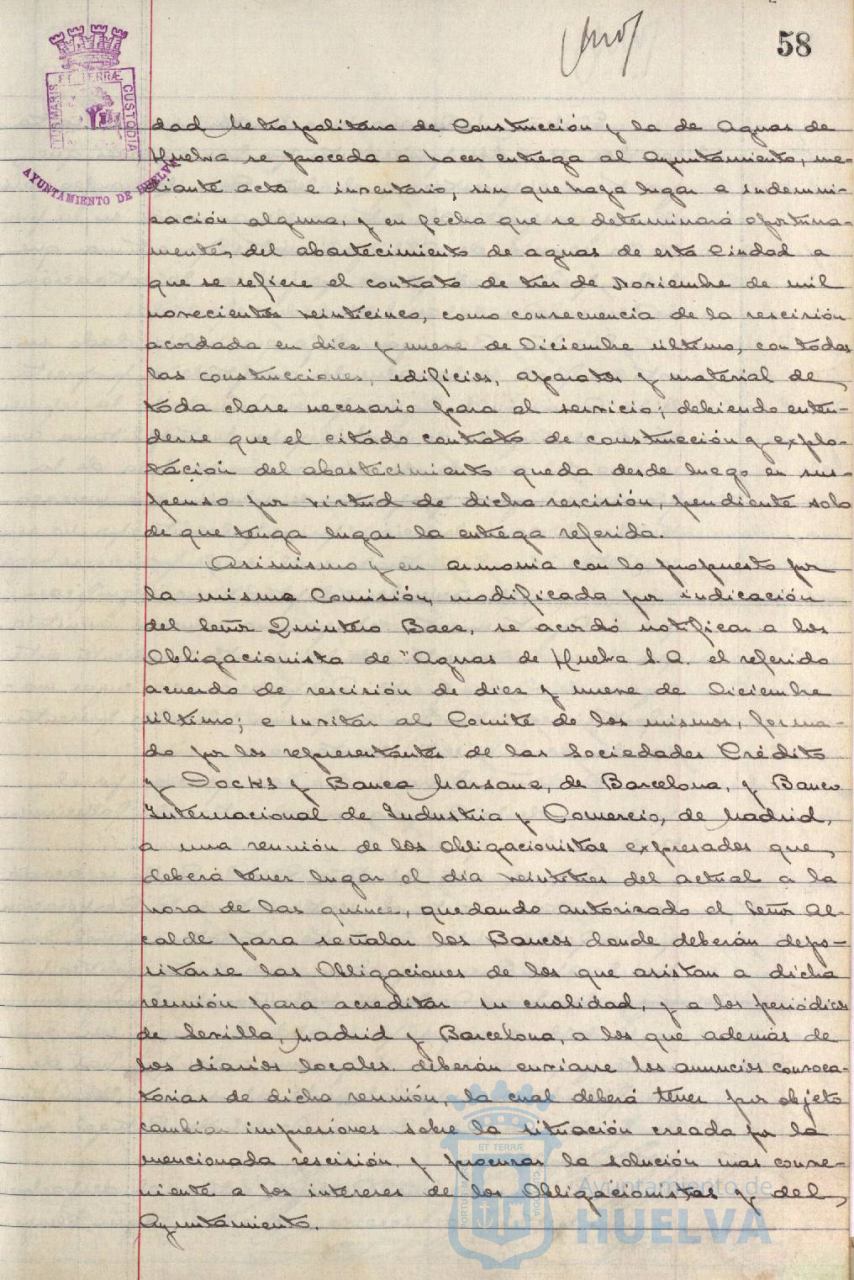 58
ET TERRÆ
CUSTODIA
AYUNTAMIENTO DE HUELVA
dad Metropolitana de Construcción y la de Aguas de
Huelva se proceda a hacer entrega al Ayuntamiento, me-
diante acta e inventario, sin que haya lugar a indemni-
zación alguna, y en fecha que se determinará oportuna-
mente, del abastecimiento de aguas de esta Ciudad a
que se refiere el contrato de tres de Noviembre de mil
novecientos veinticinco, como consecuencia de la rescisión
acordada en diez y nueve de Diciembre último, con todas
las construcciones, edificios, aparatos y material de
toda clase necesario para el servicio; debiendo enten-
derse que el citado contrato de construcción y explo-
tación del abastecimiento queda desde luego en sus-
penso por virtud de dicha rescisión, pendiente solo
de que tenga lugar la entrega referida.
Asimismo y en armonia con lo propuesto por
la misma Comisión, modificada por indicación
del Señor Quintero Baez, se acordó notificar a los
Obligacionista de "Aguas de Huelva S.A. el referido
acuerdo de rescisión de diez y nueve de Diciembre
último; e invitar al Comité de los mismos, forma-
do por los representantes de las Sociedades Crédito
y Docks y Banca Marsans, de Barcelona, y Banco
Internacional de Industria y Comercio, de Madrid,
a una reunión de los Obligacionistas expresados que
deberá tener lugar el dia veintitres del actual a la
hora de las quince, quedando autorizado el Señor Al-
calde para señalar los Bancos donde deberán depo-
sitarse las Obligaciones de los que asistan a dicha
reunión para acreditar su cualidad, y a los periódicos
de Sevilla, Madrid y Barcelona, a los que además de
los diarios locales deberán enviarse los anuncios convoca-
torias de dicha reunión, la cual deberá tener por objeto
cambiar impresiones sobre la situación creada por la
mencionada rescisión y procurar la solución mas conve-
niente a los intereses de los Obligacionistas y del
Ayuntamiento.
Ayuntamiento de
HUELVA